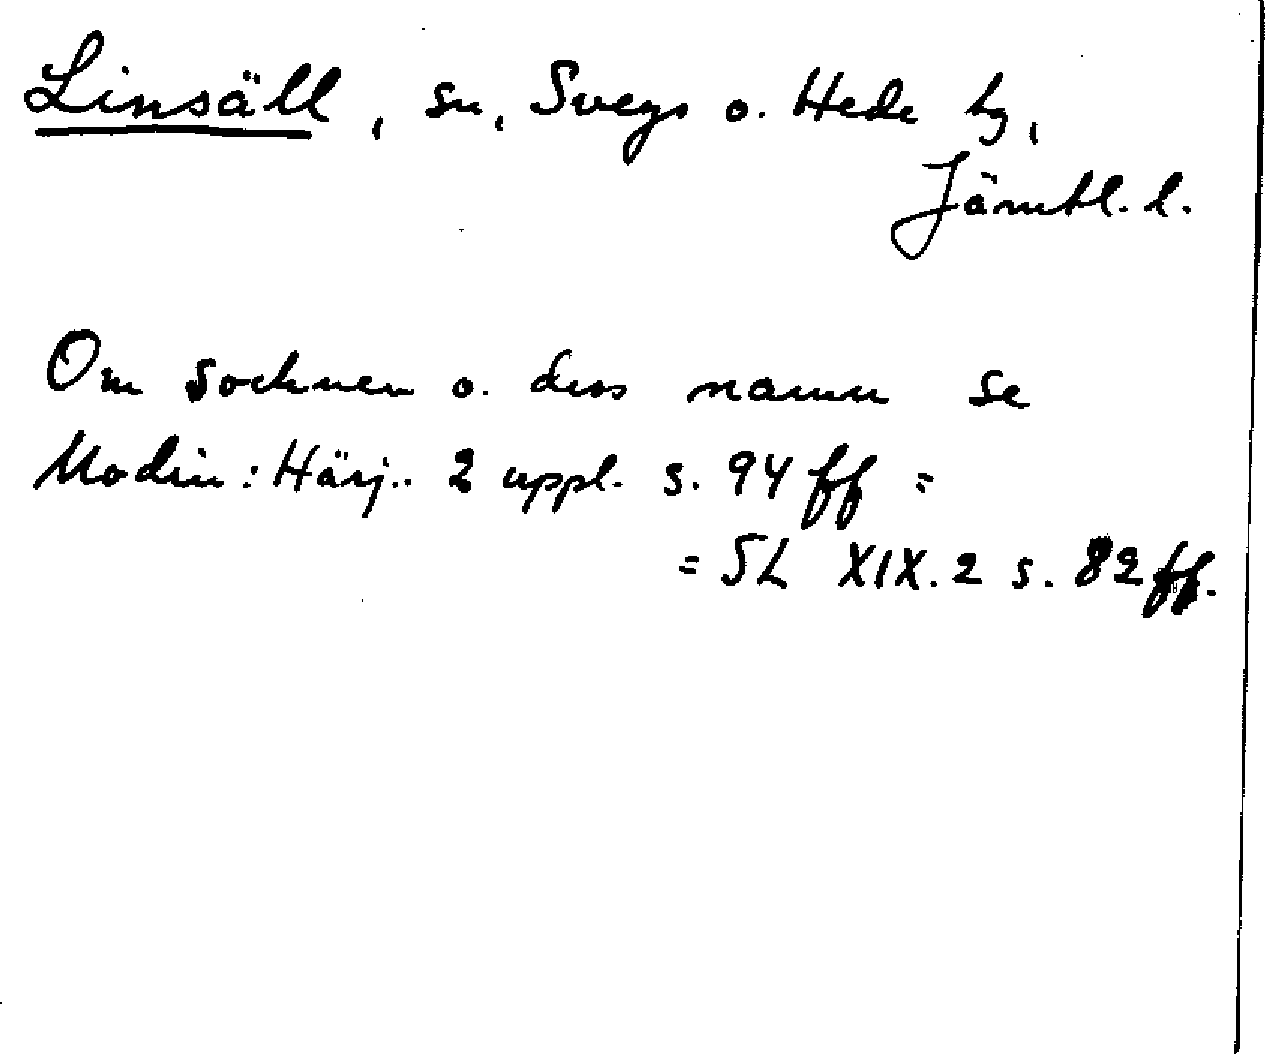 Linsäll, sn, Svegs o. Hede tg,
Jämtl. l.
Om socknen o. dess namn se
Modin: Härj.. 2 uppl. s. 94 ff =
= SL XIX. 2 s. 82 ff.